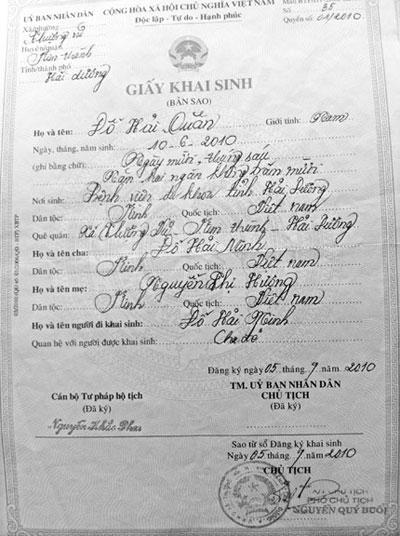 CỘNG HÒA XÃ HỘI CHỦ NGHĨA VIỆT NAM
Độc lập - Tự do - Hạnh phúc
ỦY BAN NHÂN DÂN
Số 35
Xã/phường
Quyển số 01/2010
Huyện/quận
Tỉnh/thành phố
Hải Dương
GIẤY KHAI SINH
(BẢN SAO)
Họ và tên: Đỗ Hải Quân Giới tính: Nam
Ngày, tháng, năm sinh: 10-6-2010
(ghi bằng chữ) Ngày mười, tháng sáu
Năm hai ngàn không trăm mười
Nơi sinh: Bệnh viện đa khoa tỉnh Hải Dương
Dân tộc: Kinh Quốc tịch: Việt nam
Quê quán: Xã Hải Dương
Họ và tên cha: Đỗ Hải Ninh
Dân tộc: Kinh Quốc tịch: Việt nam
Họ và tên mẹ: Nguyễn Thị Hường
Dân tộc: Kinh Quốc tịch: Việt nam
Họ và tên người đi khai sinh: Đỗ Hải Ninh
Quan hệ với người được khai sinh: Cha đẻ
Đăng ký ngày 05 tháng 7 năm 2010
Cán bộ Tư pháp hộ tịch
(Đã ký)
TM. UỶ BAN NHÂN DÂN
CHỦ TỊCH
(Đã ký)
Sao từ sổ Đăng ký khai sinh
Ngày 05 tháng 7 năm 2010
CHỦ TỊCH
KT CHỦ TỊCH
PHÓ CHỦ TỊCH
NGUYỄN QUÝ BUỔI